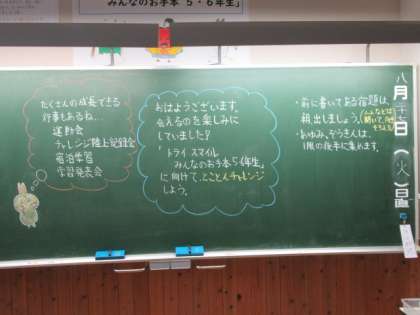 みんなのお手本 5・6年生
たくさんの成長できる
行事もあるね。
運動会
チャレンジ陸上記録会
宿泊学習
学習発表会
おはようございます。
会えるのを楽しみに
していました?
トライ スマイル
みんなのお手本5・6年生。
に向けて、とことんチャレンジ
しよう。
・前に書いてある宿題は、
朝、出しましょう。
・あゆみ、ぞうきんは、
1限の後半に集めます。
八月
日(火)